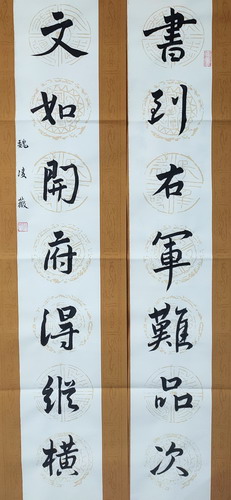 書到右軍難品次
文如開府得縱橫
魏凌薇